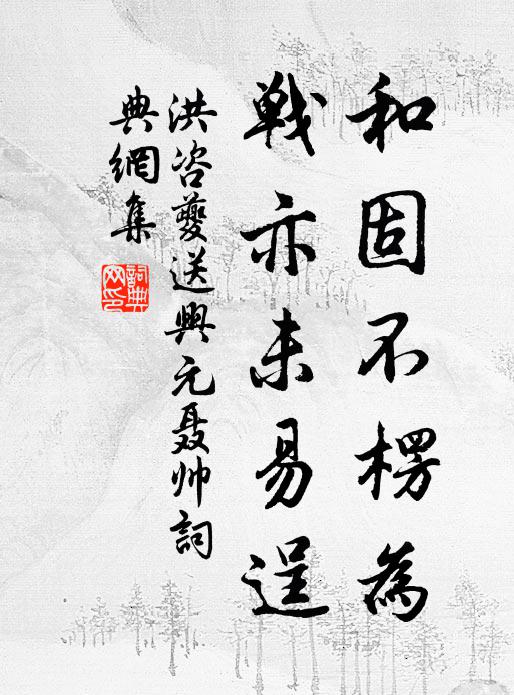 和固不楞為
戰亦未易逞
洪咨夔送興元聂帅詞
典網集
詞典网印